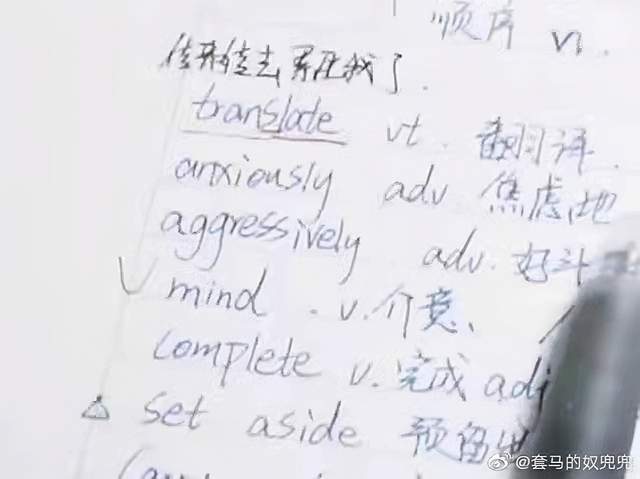 顺序 vi.
传来传去累死我了.
translate vt. 翻译.
anxiously adv 焦虑地
aggressively adv. 好斗
mind . v. 介意、
complete v. 完成 adj
△ set aside 预留出
@套马的奴兜兜